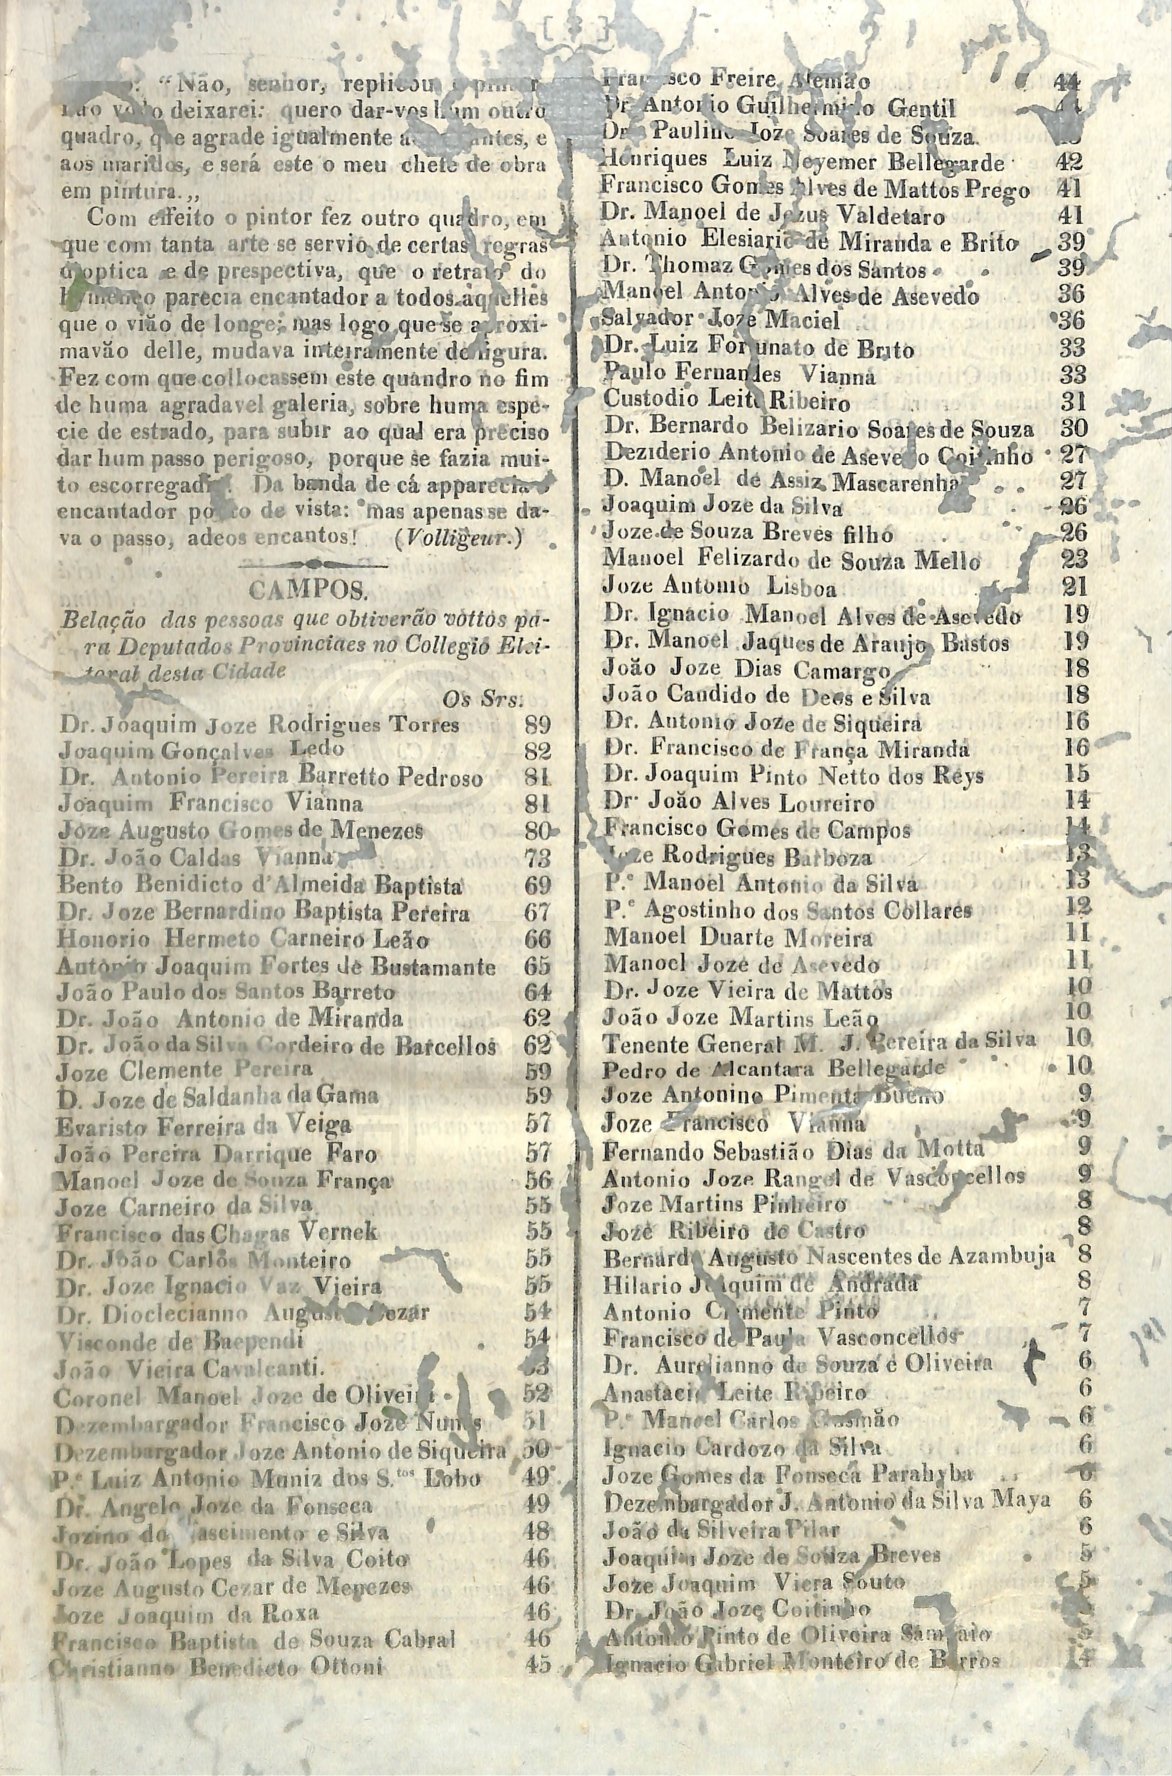 "Não, senhor, replicou o pintor,
não vo-lo deixarei: quero dar-vos hum outro
quadro, que agrade igualmente aos amantes, e
aos maridos, e será este o meu chefe de obra
em pintura.„
Com effeito o pintor fez outro quadro, em
que com tanta arte se servio de certas regras
d'optica e de prespectiva, que o retrato do
hymenêo parecia encantador a todos aquelles
que o vião de longe; mas logo que se aproxi-
mavão delle, mudava inteiramente de figura.
Fez com que collocassem este quandro no fim
de huma agradavel galeria, sobre huma espe-
cie de estrado, para subir ao qual era preciso
dar hum passo perigoso, porque se fazia mui-
to escorregadio. Da banda de cá apparecia o
encantador ponto de vista: mas apenas se da-
va o passo, adeos encantos! (Volligeur.)
CAMPOS.
Belação das pessoas que obtiverão vottos pa-
ra Deputados Provinciaes no Collegio Elei-
toral desta Cidade
Os Srs.
Dr. Joaquim Joze Rodrigues Torres 89
Joaquim Gonçalves Ledo 82
Dr. Antonio Pereira Barretto Pedroso 81
Joaquim Francisco Vianna 81
Joze Augusto Gomes de Menezes 80
Dr. João Caldas Vianna 73
Bento Benidicto d'Almeida Baptista 69
Dr. Joze Bernardino Baptista Pereira 67
Honorio Hermeto Carneiro Leão 66
Antonio Joaquim Fortes de Bustamante 65
João Paulo dos Santos Barreto 64
Dr. João Antonio de Miranda 62
Dr. João da Silva Cordeiro de Barcellos 62
Joze Clemente Pereira 59
D. Joze de Saldanha da Gama 59
Evaristo Ferreira da Veiga 57
João Pereira Darrique Faro 57
Manoel Joze de Souza França 56
Joze Carneiro da Silva 55
Francisco das Chagas Vernek 55
Dr. João Carlos Monteiro 55
Dr. Joze Ignacio Vaz Vieira 55
Dr. Dioclecianno Augusto Cezar 54
Visconde de Baependi 54
João Vieira Cavalcanti. 53
Coronel Manoel Joze de Oliveira 52
Dezembargador Francisco Joze Nunes 51
Dezembargador Joze Antonio de Siqueira 50
P.e Luiz Antonio Muniz dos S.tos Lobo 49
Dr. Angelo Joze da Fonseca 49
Jozino do Nascimento e Silva 48
Dr. João Lopes da Silva Coito 46
Joze Augusto Cezar de Menezes 46
Joze Joaquim da Roxa 46
Francisco Baptista de Souza Cabral 46
Christianno Benedicto Ottoni 45
Francisco Freire Alemão 44
Dr. Antonio Guilhermido Gentil
Dr. Paulino Joze Soares de Souza.
Henriques Luiz Neyemer Bellegarde 42
Francisco Gomes Alves de Mattos Prego 41
Dr. Manoel de Jezus Valdetaro 41
Antonio Elesiario de Miranda e Brito 39
Dr. Thomaz Gomes dos Santos 39
Manoel Antonio Alves de Asevedo 36
Salvador Joze Maciel 36
Dr. Luiz Fortunato de Brito 33
Paulo Fernandes Vianna 33
Custodio Leite Ribeiro 31
Dr. Bernardo Belizario Soares de Souza 30
Deziderio Antonio de Asevedo Coitinho 27
D. Manoel de Assiz Mascarenhas 27
Joaquim Joze da Silva 26
Joze de Souza Breves filho 26
Manoel Felizardo de Souza Mello 23
Joze Antonio Lisboa 21
Dr. Ignacio Manoel Alves de Asevedo 19
Dr. Manoel Jaques de Araujo Bastos 19
João Joze Dias Camargo 18
João Candido de Deos e Silva 18
Dr. Antonio Joze de Siqueira 16
Dr. Francisco de França Miranda 16
Dr. Joaquim Pinto Netto dos Reys 15
Dr. João Alves Loureiro 14
Francisco Gomes de Campos 14
Joze Rodrigues Barboza 13
P.e Manoel Antonio da Silva 13
P.e Agostinho dos Santos Collares 12
Manoel Duarte Moreira 11
Manoel Joze de Asevedo 11
Dr. Joze Vieira de Mattos 10
João Joze Martins Leão 10
Tenente General M. J. Pereira da Silva 10
Pedro de Alcantara Bellegarde 10
Joze Antonino Pimenta Bueno 9
Joze Francisco Vianna 9
Fernando Sebastião Dias da Motta 9
Antonio Joze Rangel de Vasconcellos 9
Joze Martins Pinheiro 8
Joze Ribeiro de Castro 8
Bernardo Augusto Nascentes de Azambuja 8
Hilario Joaquim de Andrada 8
Antonio Clemente Pinto 7
Francisco de Paula Vasconcellos 7
Dr. Aurelianno de Souza e Oliveira 6
Anastacio Leite Ribeiro 6
P.e Manoel Carlos Gusmão 6
Ignacio Cardozo da Silva 6
Joze Gomes da Fonseca Parahyba 6
Dezembargador J. Antonio da Silva Maya 6
João da Silveira Pilar 6
Joaquim Joze de Souza Breves 5
Joze Joaquim Viera Souto 5
Dr. João Joze Coitinho
Antonio Pinto de Oliveira Sampaio
Ignacio Gabriel Monteiro de Barros